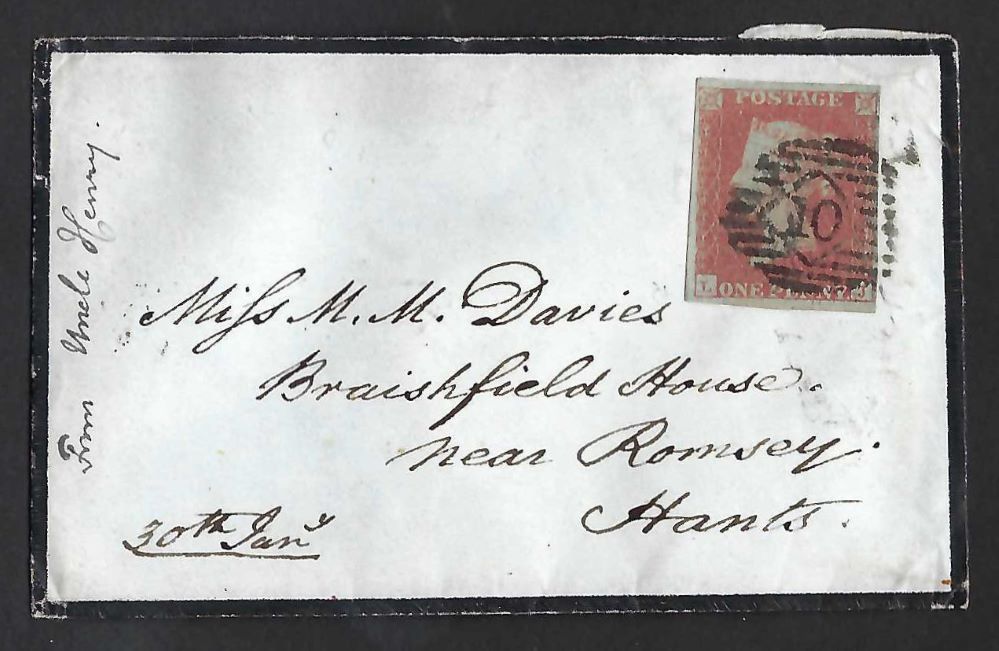 POSTAGE
10
L ONE PENNY J
From Uncle Henry.
Miss M. M. Davies
Braishfield House.
near Romsey.
Hants.
30th Jany